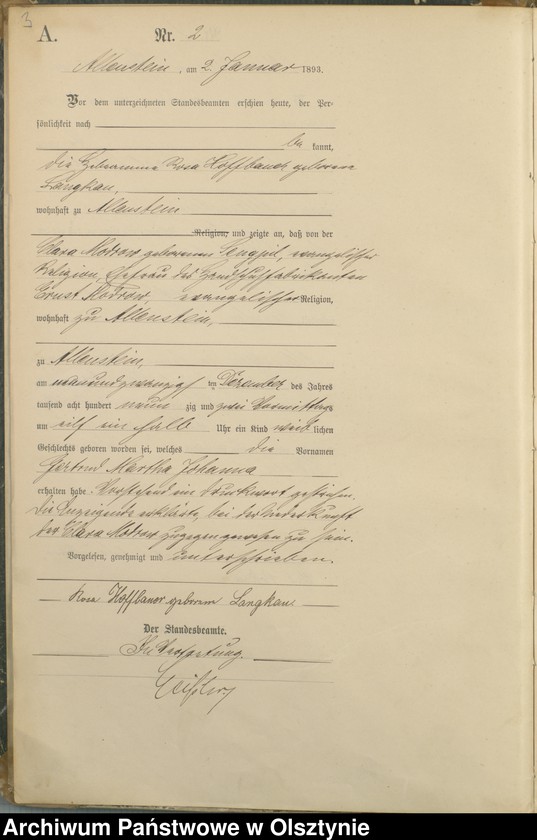 3
A.
Nr. 2
Allenstein, am 2. Januar 1893.
Vor dem unterzeichneten Standesbeamten erschien heute, der Per-
sönlichkeit nach
be kannt,
die Hebeamme Rosa Hoffbauer geborene
Langkau,
wohnhaft zu Allenstein
Religion, und zeigte an, daß von der
Clara Motrow geborenen evangelischer
Religion, Ehefrau des Handschuhfabrikanten
Ernst Motrow, evangelischer Religion,
wohnhaft zu Allenstein,
zu Allenstein,
am neunundzwanzigsten ten Dezember des Jahres
tausend acht hundert neun zig und zwei Vormittags
um eilf ein halb Uhr ein Kind weib lichen
Geschlechts geboren worden sei, welches die Vornamen
Gertrud Martha Johanna
erhalten habe. Vorstehend ein Druckwort gestrichen.
Die Anzeigende erklärte, bei der Niederkunft
der Clara Motrow zugegen gewesen zu sein.
Vorgelesen, genehmigt und unterschrieben.
Rosa Hoffbauer geborene Langkau
Der Standesbeamte.
In Vertretung.
Archiwum Państwowe w Olsztynie